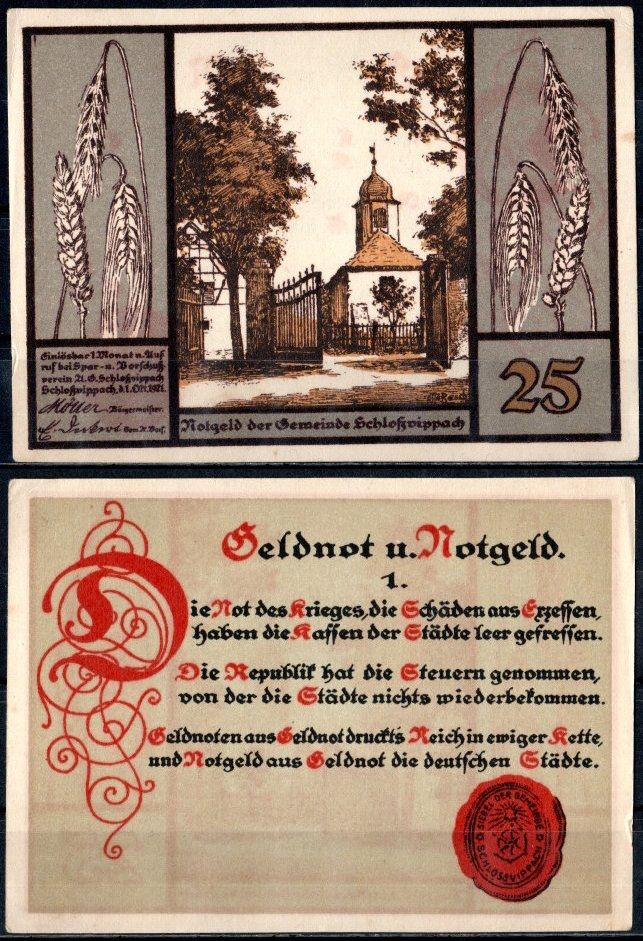 Einlösbar 1 Monat n. Auf
ruf bei Spar- u. Vorschuß
verein A. G. Schloßvippach
Schloßvippach, d. 1. Okt. 1921.
Bürgermeister.
Notgeld der Gemeinde Schloßvippach
25
Geldnot u. Notgeld.
1.
Die Not des Krieges, die Schäden aus Exzessen,
haben die Kassen der Städte leer gefressen.
Die Republik hat die Steuern genommen,
von der die Städte nichts wiederbekommen.
Geldnoten aus Geldnot druckts Reich in ewiger Kette,
und Notgeld aus Geldnot die deutschen Städte.
SIEGEL DER GEMEINDE
SCHLOSSVIPPACH